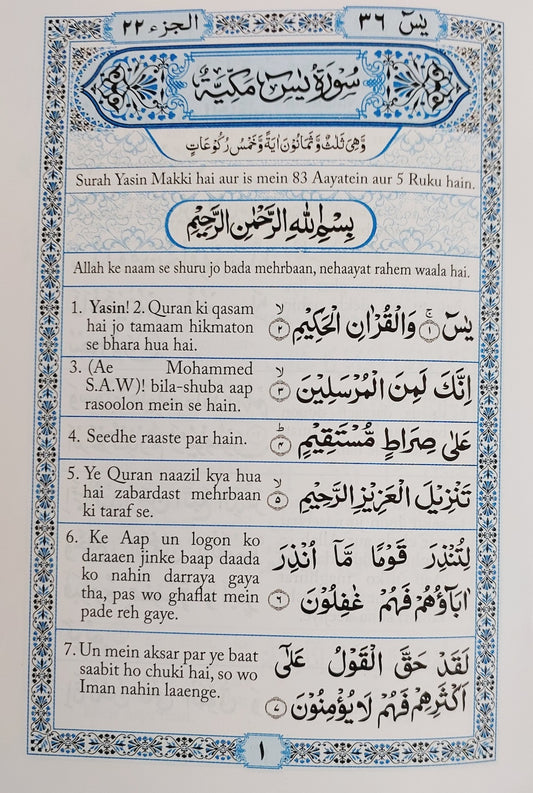 يٰسٓ ٣٦
الجزء ٢٢
سُوْرَةُ يٰسٓ مَكِّيَّةٌ
وَهِيَ ثَلٰثٌ وَّثَمَانُوْنَ اٰيَةً وَّخَمْسُ رُكُوْعَاتٍ
Surah Yasin Makki hai aur is mein 83 Aayatein aur 5 Ruku hain.
بِسْمِ اللّٰهِ الرَّحْمٰنِ الرَّحِيْمِ
Allah ke naam se shuru jo bada mehrbaan, nehaayat rahem waala hai.
يٰسٓ ۚ﴿١﴾ وَالْقُرْاٰنِ الْحَكِيْمِ ۙ﴿٢﴾
1. Yasin! 2. Quran ki qasam
hai jo tamaam hikmaton
se bhara hua hai.
اِنَّكَ لَمِنَ الْمُرْسَلِيْنَ ۙ﴿٣﴾
3. (Ae Mohammed
S.A.W)! bila-shuba aap
rasoolon mein se hain.
عَلٰى صِرَاطٍ مُّسْتَقِيْمٍ ؕ﴿٤﴾
4. Seedhe raaste par hain.
تَنْزِيْلَ الْعَزِيْزِ الرَّحِيْمِ ۙ﴿٥﴾
5. Ye Quran naazil kya hua
hai zabardast mehrbaan
ki taraf se.
لِتُنْذِرَ قَوْمًا مَّاۤ اُنْذِرَ
اٰبَآؤُهُمْ فَهُمْ غٰفِلُوْنَ ﴿٦﴾
6. Ke Aap un logon ko
daraaen jinke baap daada
ko nahin darraya gaya
tha, pas wo ghaflat mein
pade reh gaye.
لَقَدْ حَقَّ الْقَوْلُ عَلٰۤى
اَكْثَرِهِمْ فَهُمْ لَا يُؤْمِنُوْنَ ﴿٧﴾
7. Un mein aksar par ye baat
saabit ho chuki hai, so wo
Iman nahin laaenge.
١